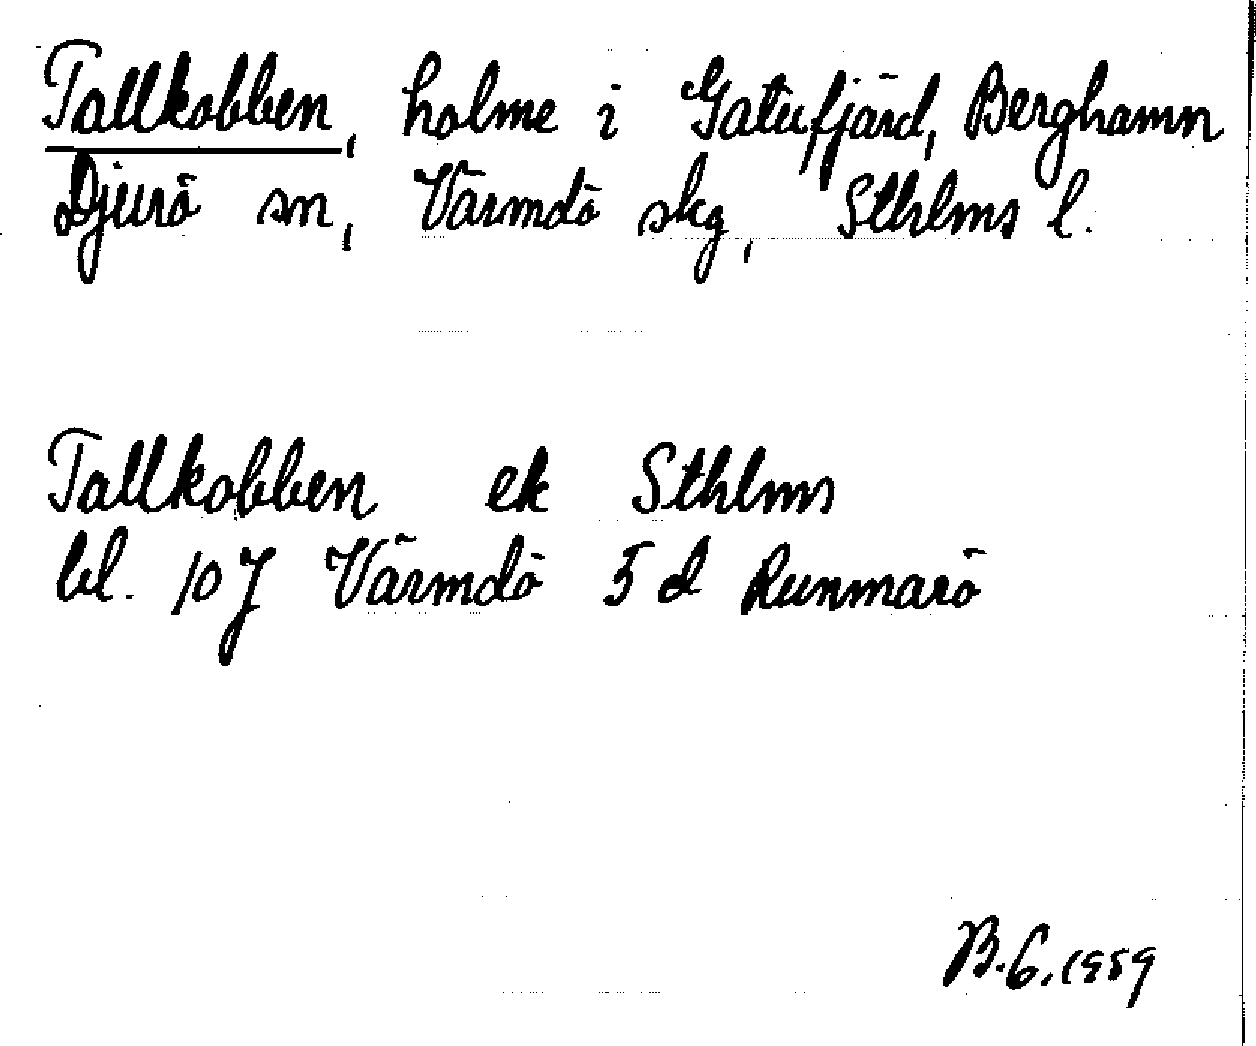 Tallkobben, holme i Gatufjärd, Berghamn
Djurö sn, Värmdö skg, Sthlms l.
Tallkobben ek Sthlms
bl. 10 J Värmdö 5 d Runmarö
B.G. 1959